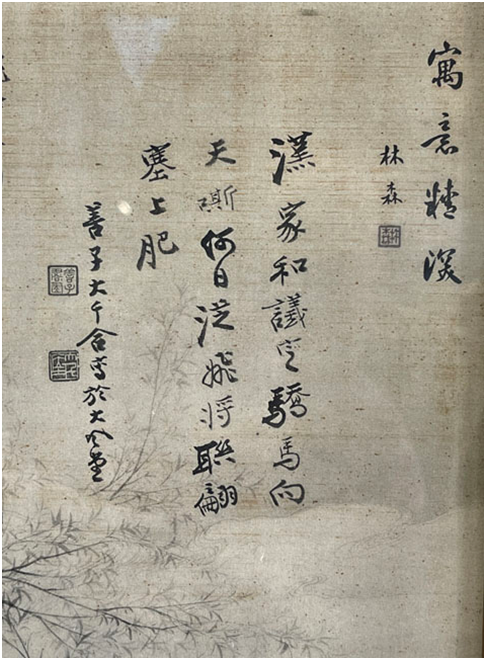 寓意精深
林森
漢家和議定驕馬向
天嘶何日從飛將聯翩
塞上肥
善子大千合寫於大風堂